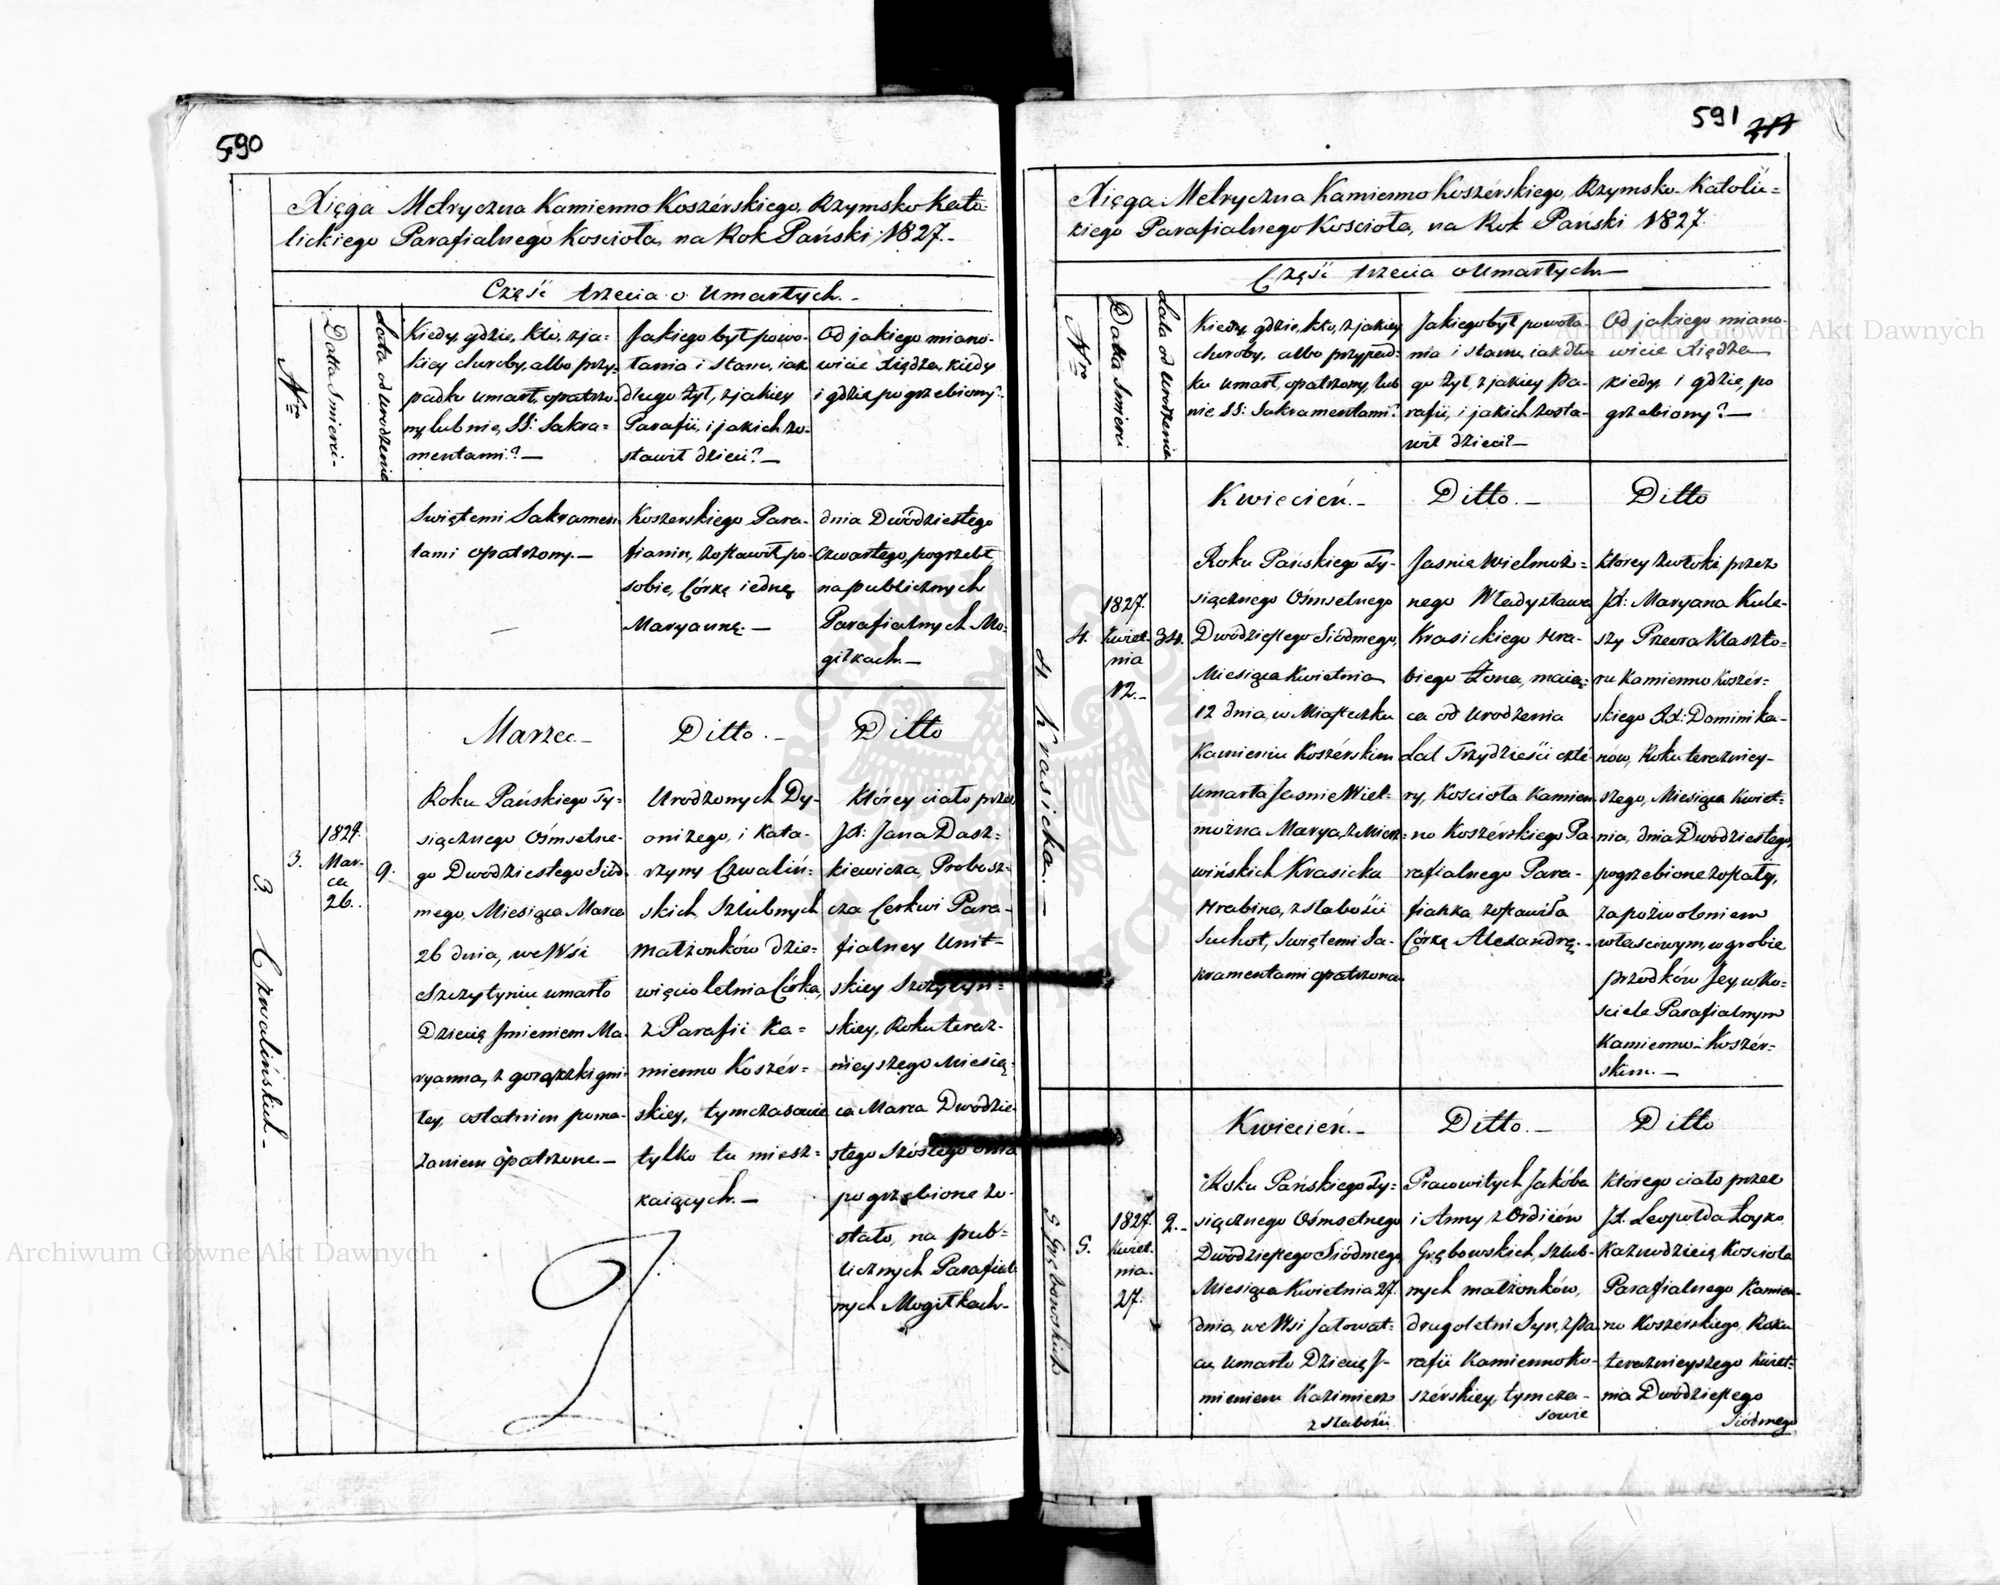 590
Xięga Metryczna Kamienno Koszérskiego, Rzymsko Kato-
lickiego Parafialnego Koscioła, na Rok Pański 1827.-
Część trzecia o Umarłych.-
Nro
Datta Smierci-
Lata od Urodzenia
Kiedy, gdzie, Kto, z ja-
kiey choroby, albo przy-
padku umarł, opatrzo-
ny lub nie, SS: Sakra=
mentami?-
Jakiego był powo-
łania i stanu, iak
długo żył, z jakiey
Parafii, i jakich zo-
stawił dzieci?-
Od jakiego miano-
wicie Xiędza, kiedy
i gdzie pogrzebiony?-
Swiętemi Sakramen-
tami opatrzony.-
Koszerskiego Para-
fianin, zostawił po-
sobie, Córkę iednę
Maryannę.-
dnia Dwódziestego
Czwartego, pogrzebł
na publicznych
Parafialnych Mo-
giłkach.-
3. Czwalińskich-
Marzec.-
Ditto.-
Ditto
3.
1827.
Mar-
ca
26.
9.
Roku Pańskiego Ty-
siącznego Ośmsetne-
go Dwódziestego Siód-
mego, Miesiąca Marca
26 dnia, we Wsi
Szczytyniu umarło
Dziecię Jmieniem Ma-
ryanna, z gorączki gni-
łey, ostatnim poma-
zaniem opatrzone.-
Urodzonych Dy-
onizego, i Kata-
rzyny Czwaliń-
skich Szlubnych
małżonków dzie-
więcioletnia Córka,
z Parafii Ka=
mienno Koszér=
skiey, tymczasowie
tylko tu miesz=
kaiących.-
Którey ciało przez
Jana Dasz=
kiewicza, Probosz-
cza Cerkwi Para-
fialney Unit-
skiey Szczytyn=
skiey, Roku teraz-
nieyszego Miesią-
ca Marca Dwódzie-
stego Szóstego dnia
pogrzebione zo-
stało, na pub-
licznych Parafial-
nych Mogiłkach-
591
Xięga Metryczna Kamienno Koszérskiego, Rzymsko-Katolic=
kiego Parafialnego Koscioła, na Rok Pański 1827.
Część trzecia o Umarłych-
Nro
Datta Smierci
Lata od Urodzenia
Kiedy, gdzie, kto, z jakiey
choroby, albo przypad=
ku umarł, opatrzony, lub
nie SS: Sakramentami?
Jakiego był powoła-
nia i stanu, iak dłu-
go żył, z jakiey Pa-
rafii, i jakich zosta-
wił dzieci?-
Od jakiego miano-
wicie Xiędza
kiedy i gdzie, po
grzebiony?-
4. Krasicka.-
Kwiecień.-
Ditto.-
Ditto
4.
1827.
Kwiet-
nia
12.-
34.
Roku Pańskiego Ty-
siącznego Ośmsetnego
Dwódziestego Siódmego,
Miesiąca Kwietnia
12 dnia, w Miasteczku
Kamieniu Koszérskim
Umarła Jasnie Wiel-
można Marya, z Mierz=
wińskich Krasicka
Hrabina, z słabości
Suchot, Swiętemi Sa-
kramentami opatrzona
Jasnie Wielmoż=
nego Władysława
Krasickiego Hra-
biego Żona, maią-
ca od Urodzenia
Lat Trzydzieści czté-
ry, Kosciola Kamien
no Koszérskiego Pa-
rafialnego Para-
fianka, zostawiła
Córkę Alexandrę.-
Którey zwłoki przez
Maryana Kule-
szy Przeora Klaszto-
ru Kamienno Koszér-
skiego XX: Dominika-
nów, Roku teraźniey-
szego, Miesiąca Kwiet=
nia, dnia Dwódziestego,
pogrzebione zostały,
za pozwoleniem
właściwym, w grobie
przodków Jey w Ko-
sciele Parafialnym
Kamienno-Koszér-
skim.-
5 Grębowskich
Kwiecień.-
Ditto.-
Ditto
5.
1827.
Kwiet.
nia.
27.
2.-
Roku Pańskiego Ty=
siącznego Ośmsetnego
Dwódziestego Siódmego
Miesiąca Kwietnia 27.
dnia, we Wsi Jatowat-
cu, umarło Dziecię J-
mieniem Kazimierz
z słabości
Pracowitych Jakóba
i Anny z Ordiców
Grębowskich, szlub-
nych małżonków,
drugoletni Syn, z Pa
rafii Kamienno Ko-
szérskiey, tymcza-
sowie
Którego ciało przez
Leopolda Łoyko
Kaznodzieię Kosciola
Parafialnego Kamien-
no Koszerskiego, Roku
teraznieyszego Kwiet=
nia Dwódziestego
Siódmego
Archiwum Główne Akt Dawnych
Archiwum Główne Akt Dawnych